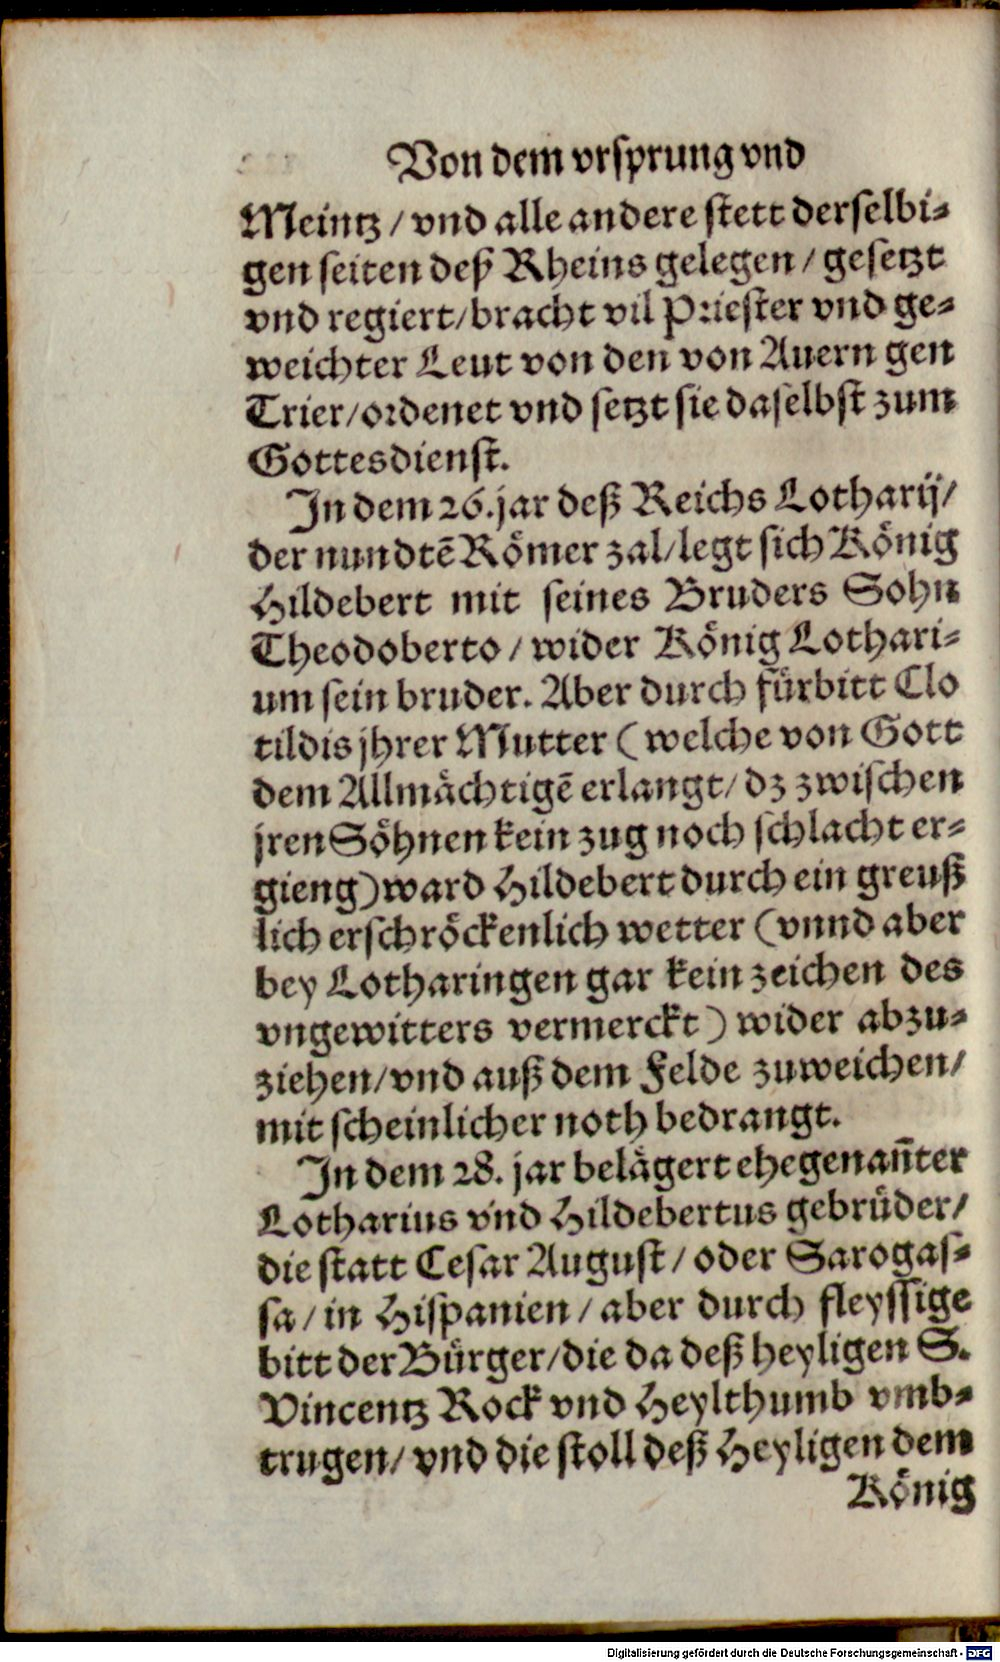 Von dem vrsprung vnd
Meintz / vnd alle andere stett derselbi⸗
gen seiten deß Rheins gelegen / gesetzt
vnd regiert/bracht vil Priester vnd ge⸗
weichter Leut von den von Auern gen
Trier/ordenet vnd setzt sie daselbst zum
Gottesdienst.
In dem 26.jar deß Reichs Lotharij/
der nundtẽ Römer zal/legt sich König
Hildebert mit seines Bruders Sohn
Theodoberto / wider König Lothari⸗
um sein bruder. Aber durch fürbitt Clo
tildis jhrer Mutter (welche von Gott
dem Allmächtigẽ erlangt/ dz zwischen
jren Söhnen kein zug noch schlacht er⸗
gieng) ward Hildebert durch ein greuß
lich erschröckenlich wetter (vnnd aber
bey Lotharingen gar kein zeichen des
vngewitters vermerckt) wider abzu⸗
ziehen/vnd auß dem Felde zuweichen/
mit scheinlicher noth bedrangt.
In dem 28. jar belägert ehegenañter
Lotharius vnd Hildebertus gebrüder/
die statt Cesar August / oder Sarogas⸗
sa / in Hispanien / aber durch fleyssige
bitt der Bürger/die da deß heyligen S.
Vincentz Rock vnd Heylthumb vmb⸗
trugen/ vnd die stoll deß Heyligen dem
König
Digitalisierung gefördert durch die Deutsche Forschungsgemeinschaft - DFG